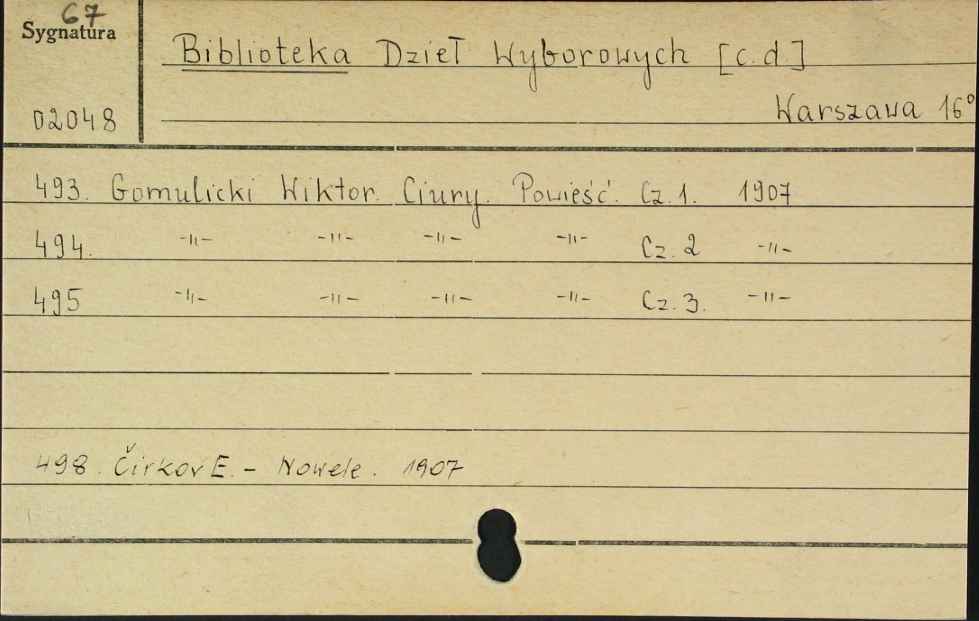 67
Sygnatura
02048
Biblioteka Dzieł Wyborowych [c.d.]
Warszawa 16°
493. Gomulicki Wiktor. Ciury. Powieść. Cz. 1. 1907
494. -"- -"- -"- -"- Cz. 2 -"-
495 -"- -"- -"- -"- Cz. 3. -"-
498. Čirkov E. - Nowele. 1907